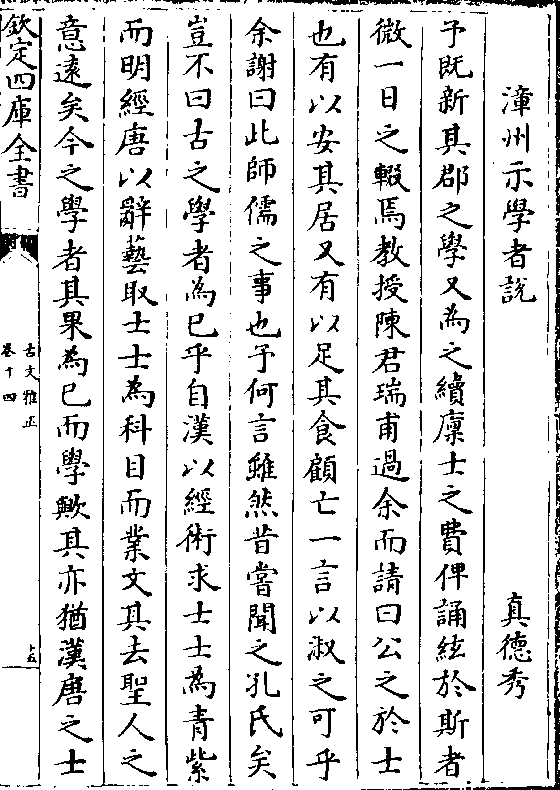 漳州示學者說　真德秀
予既新其郡之學又為之續廩士之費俾誦絃於斯者
微一日之輟焉教授陳君瑞甫過余而請曰公之於士
也有以安其居又有以足其食顧亡一言以淑之可乎
余謝曰此師儒之事也予何言雖然昔嘗聞之孔氏矣
豈不曰古之學者為己乎自漢以經術求士士為青紫
而明經唐以辭藝取士士為科目而業文其去聖人之
意遠矣今之學者其果為己而學歟其亦猶漢唐之士
欽定四庫全書
古文雅正
卷十四
十五